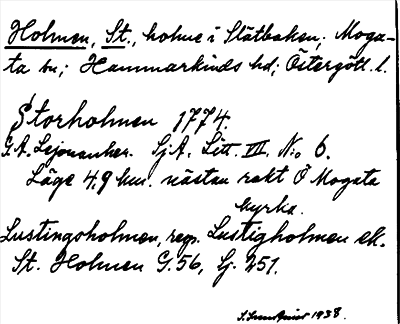 Holmen, St., holme i Slätbaken; Moga-
ta sn; Hammarkinds hd; Östergötl. l.
Storholmen 1774.
G.A. Lejonanker. Sj.A. Litt. III, N:o 6.
Läge 4,9 km. nästan rakt Ö Mogata
kyrka.
Lustingsholmen, regs. Lustigholmen ek.
St. Holmen G.56, Gj. 251.
1938.